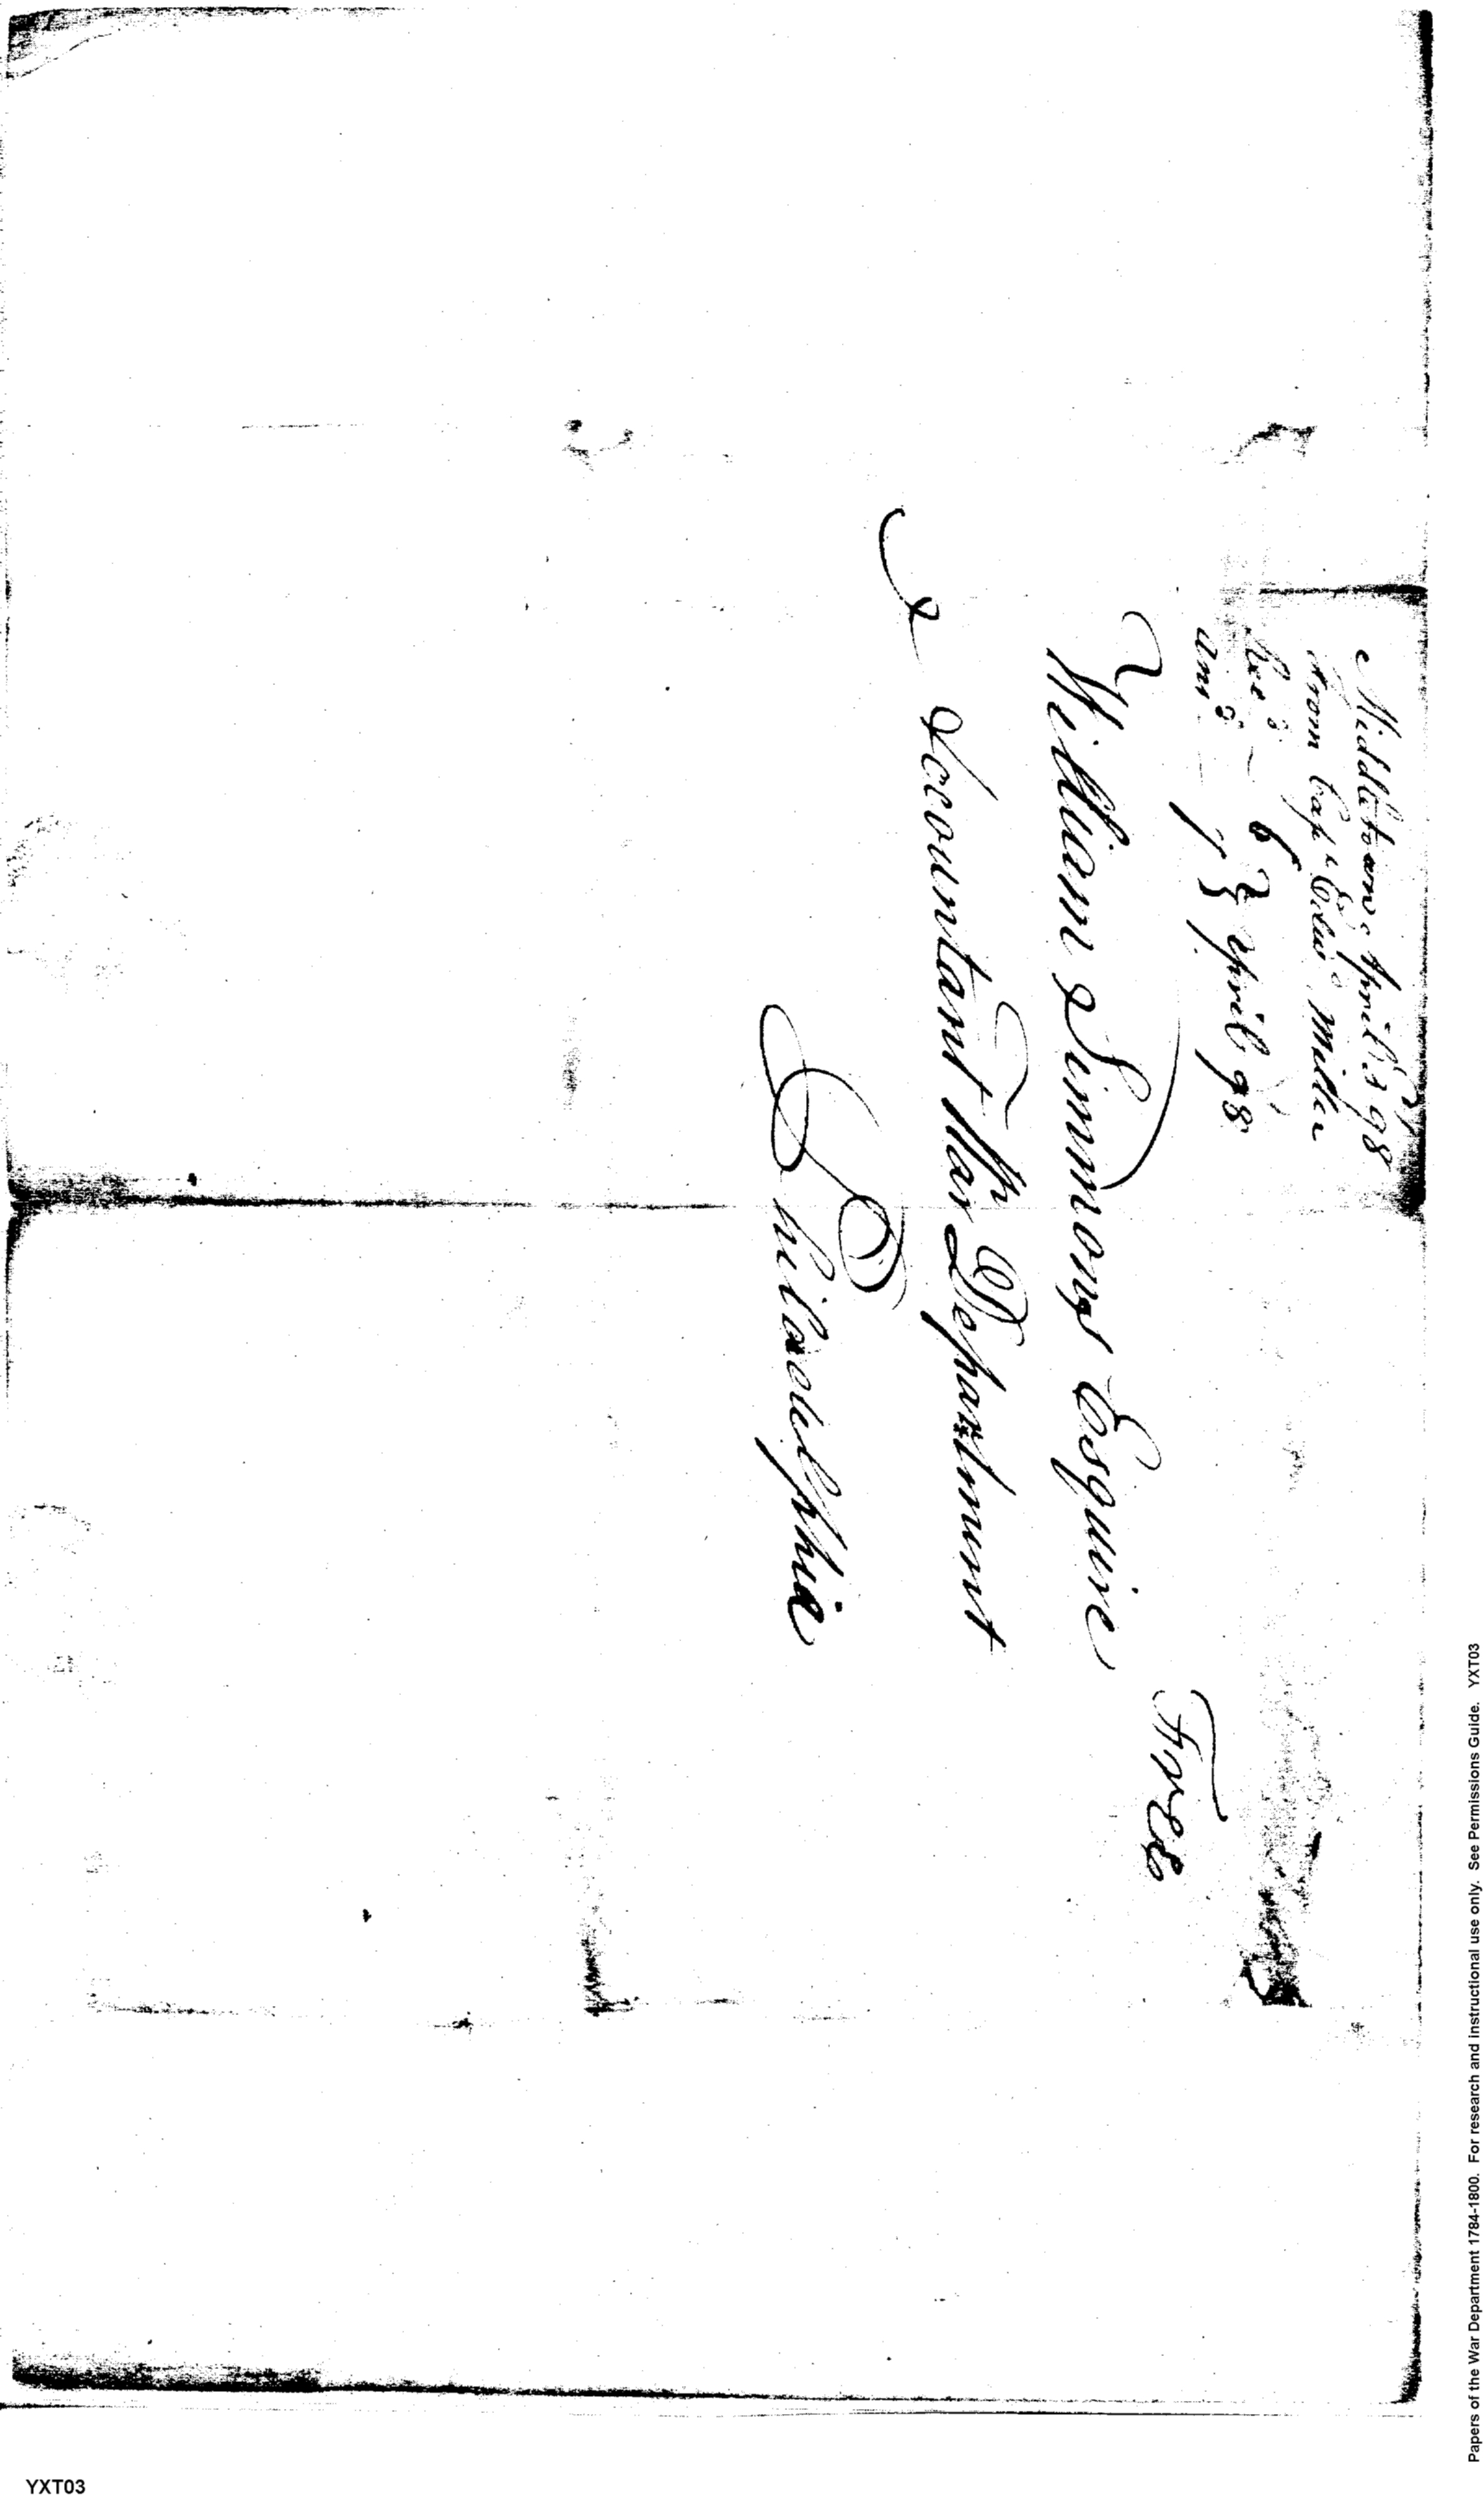 Middletown April 3 98
from Capt. Edwd. Miller
Recd. — 6 } April 98
Ansd. — 7 }
William Simmons Esquire
Free
Accountant War Department
Philadelphia
Papers of the War Department 1784-1800. For research and instructional use only. See Permissions Guide. YXT03
YXT03